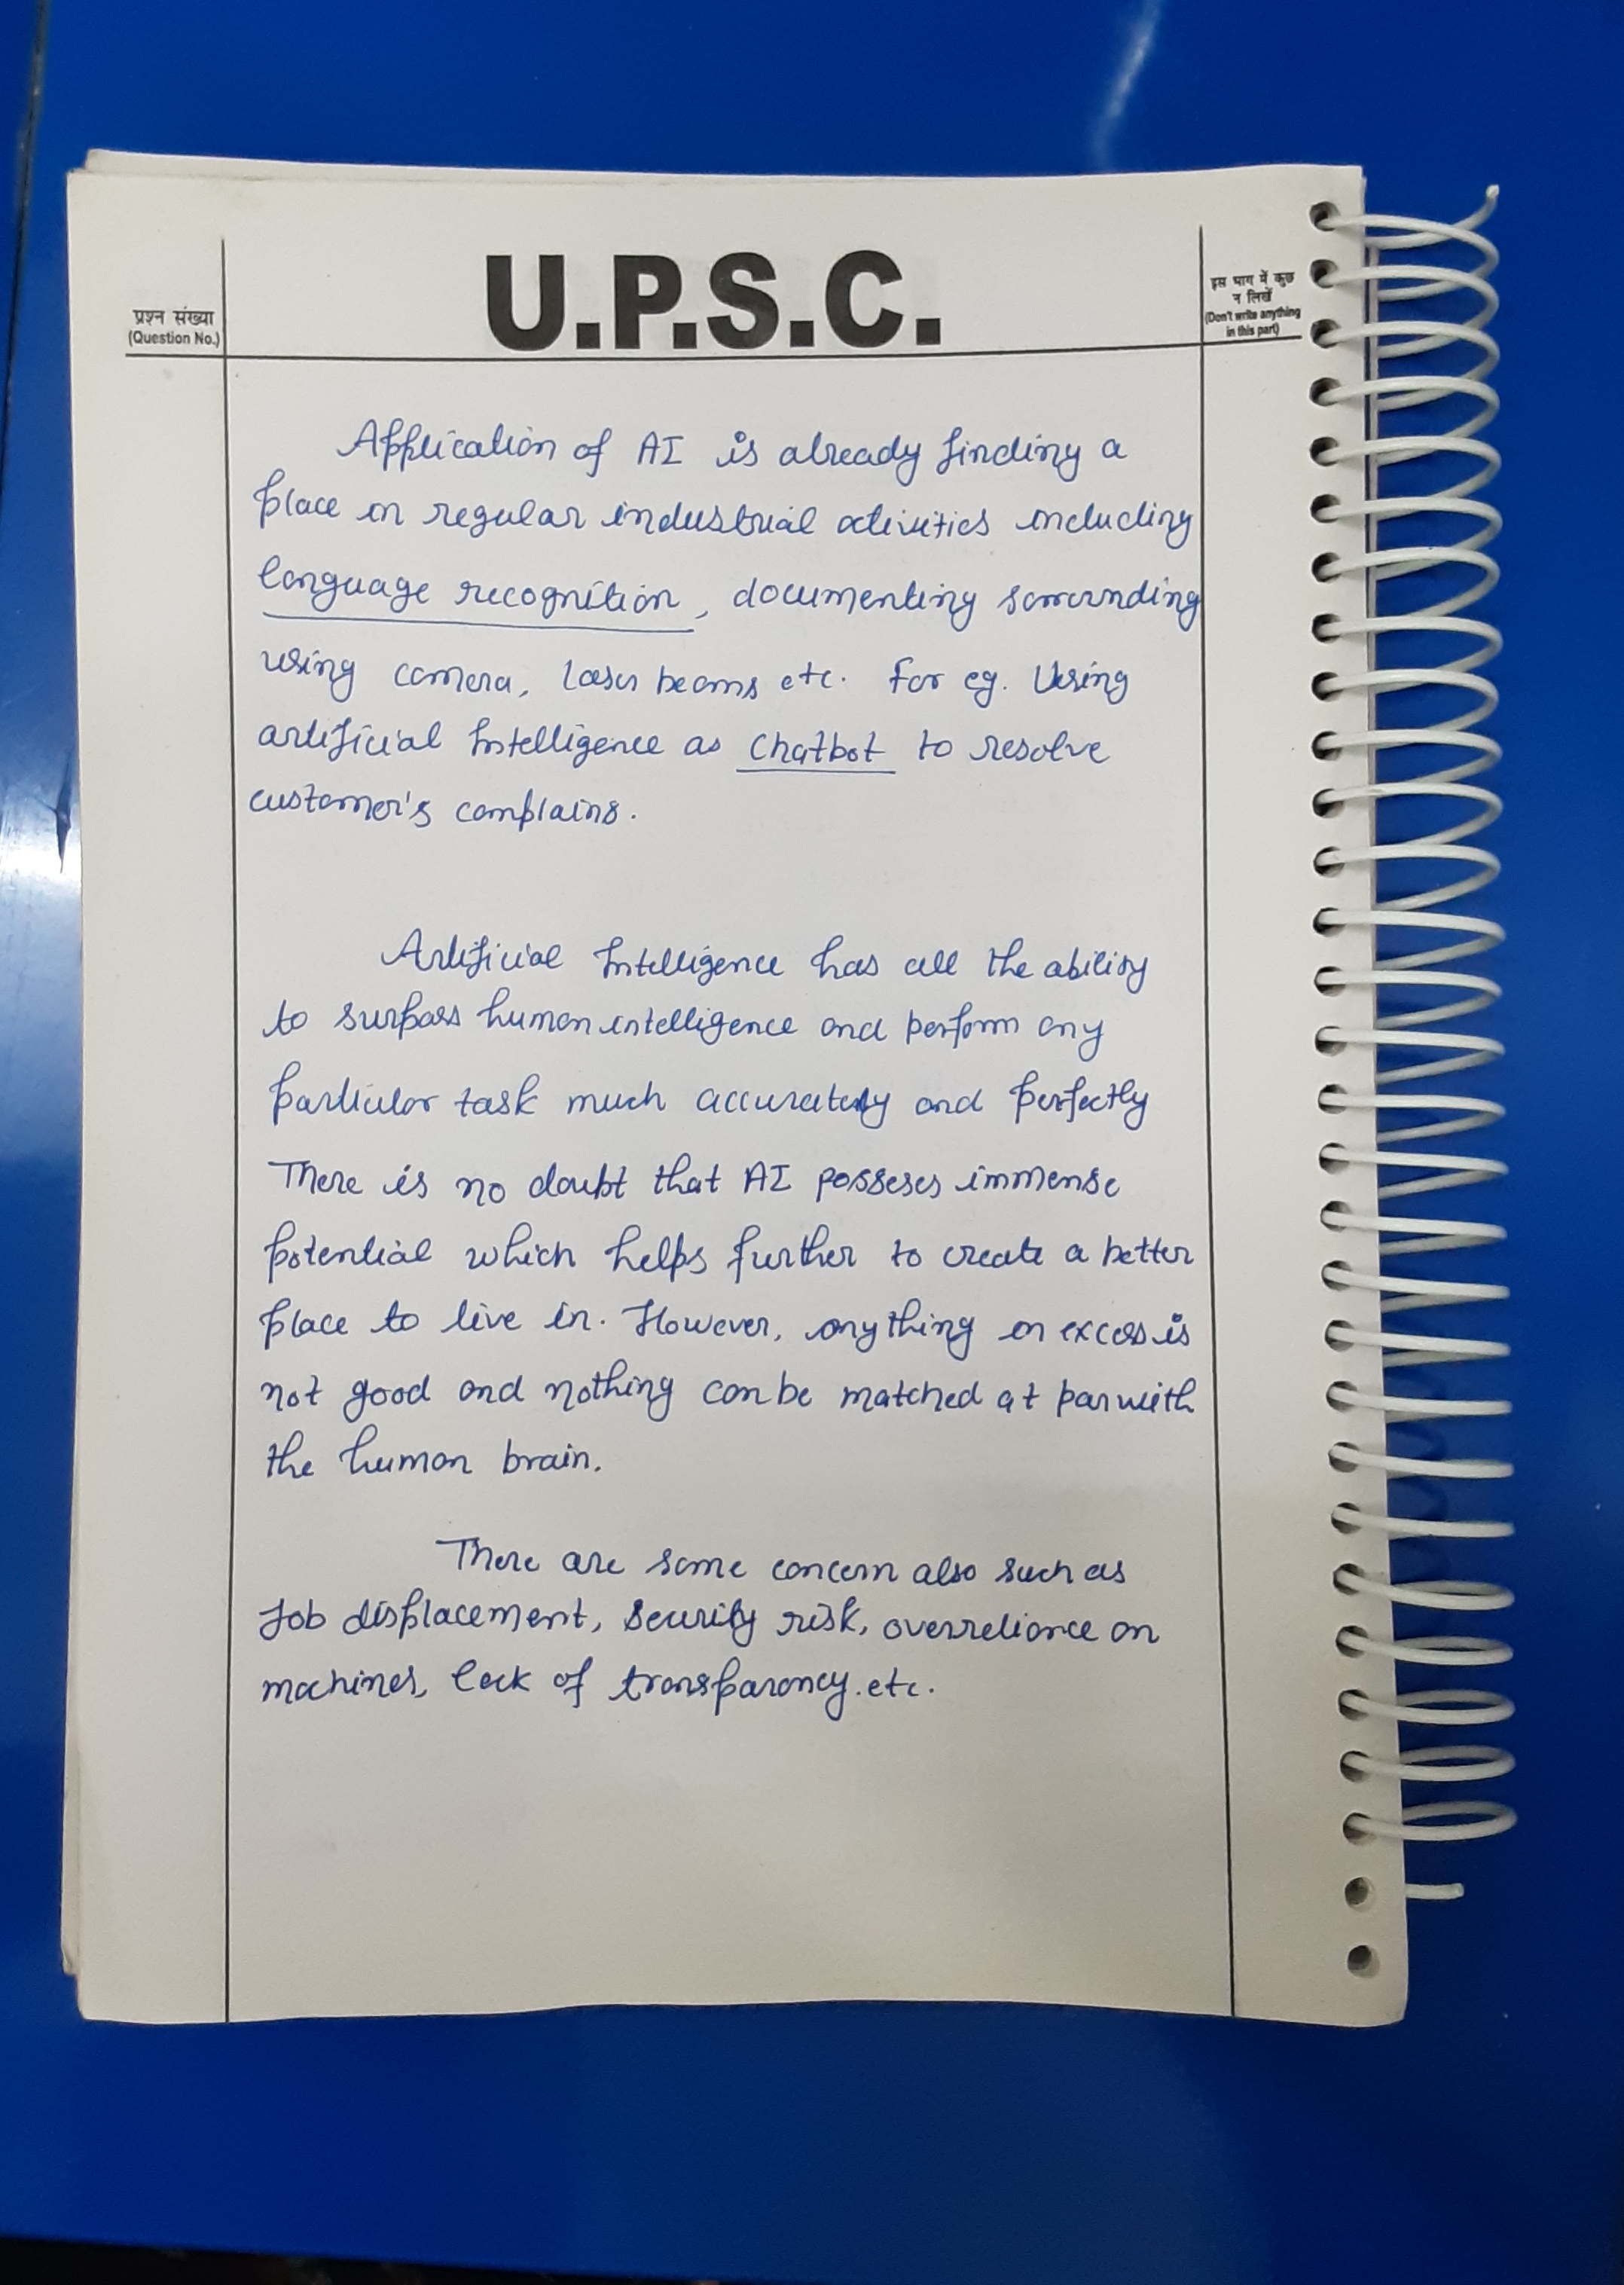 U.P.S.C.
प्रश्न संख्या
(Question No.)
इस भाग में कुछ
न लिखें
(Don't write anything
in this part)
Application of AI is already finding a
place in regular industrial activities including
language recognition, documenting sorrounding
using camera, laser beams etc. For eg. Using
artificial Intelligence as Chatbot to resolve
customer's complains.
Artificial Intelligence has all the ability
to surpass human intelligence and perform any
particular task much accurately and perfectly
There is no doubt that AI posseses immense
potential which helps further to create a better
place to live in. However, anything in excess is
not good and nothing can be matched at par with
the human brain.
There are some concern also such as
Job displacement, Security risk, overreliance on
machines, lack of transparancy.etc.